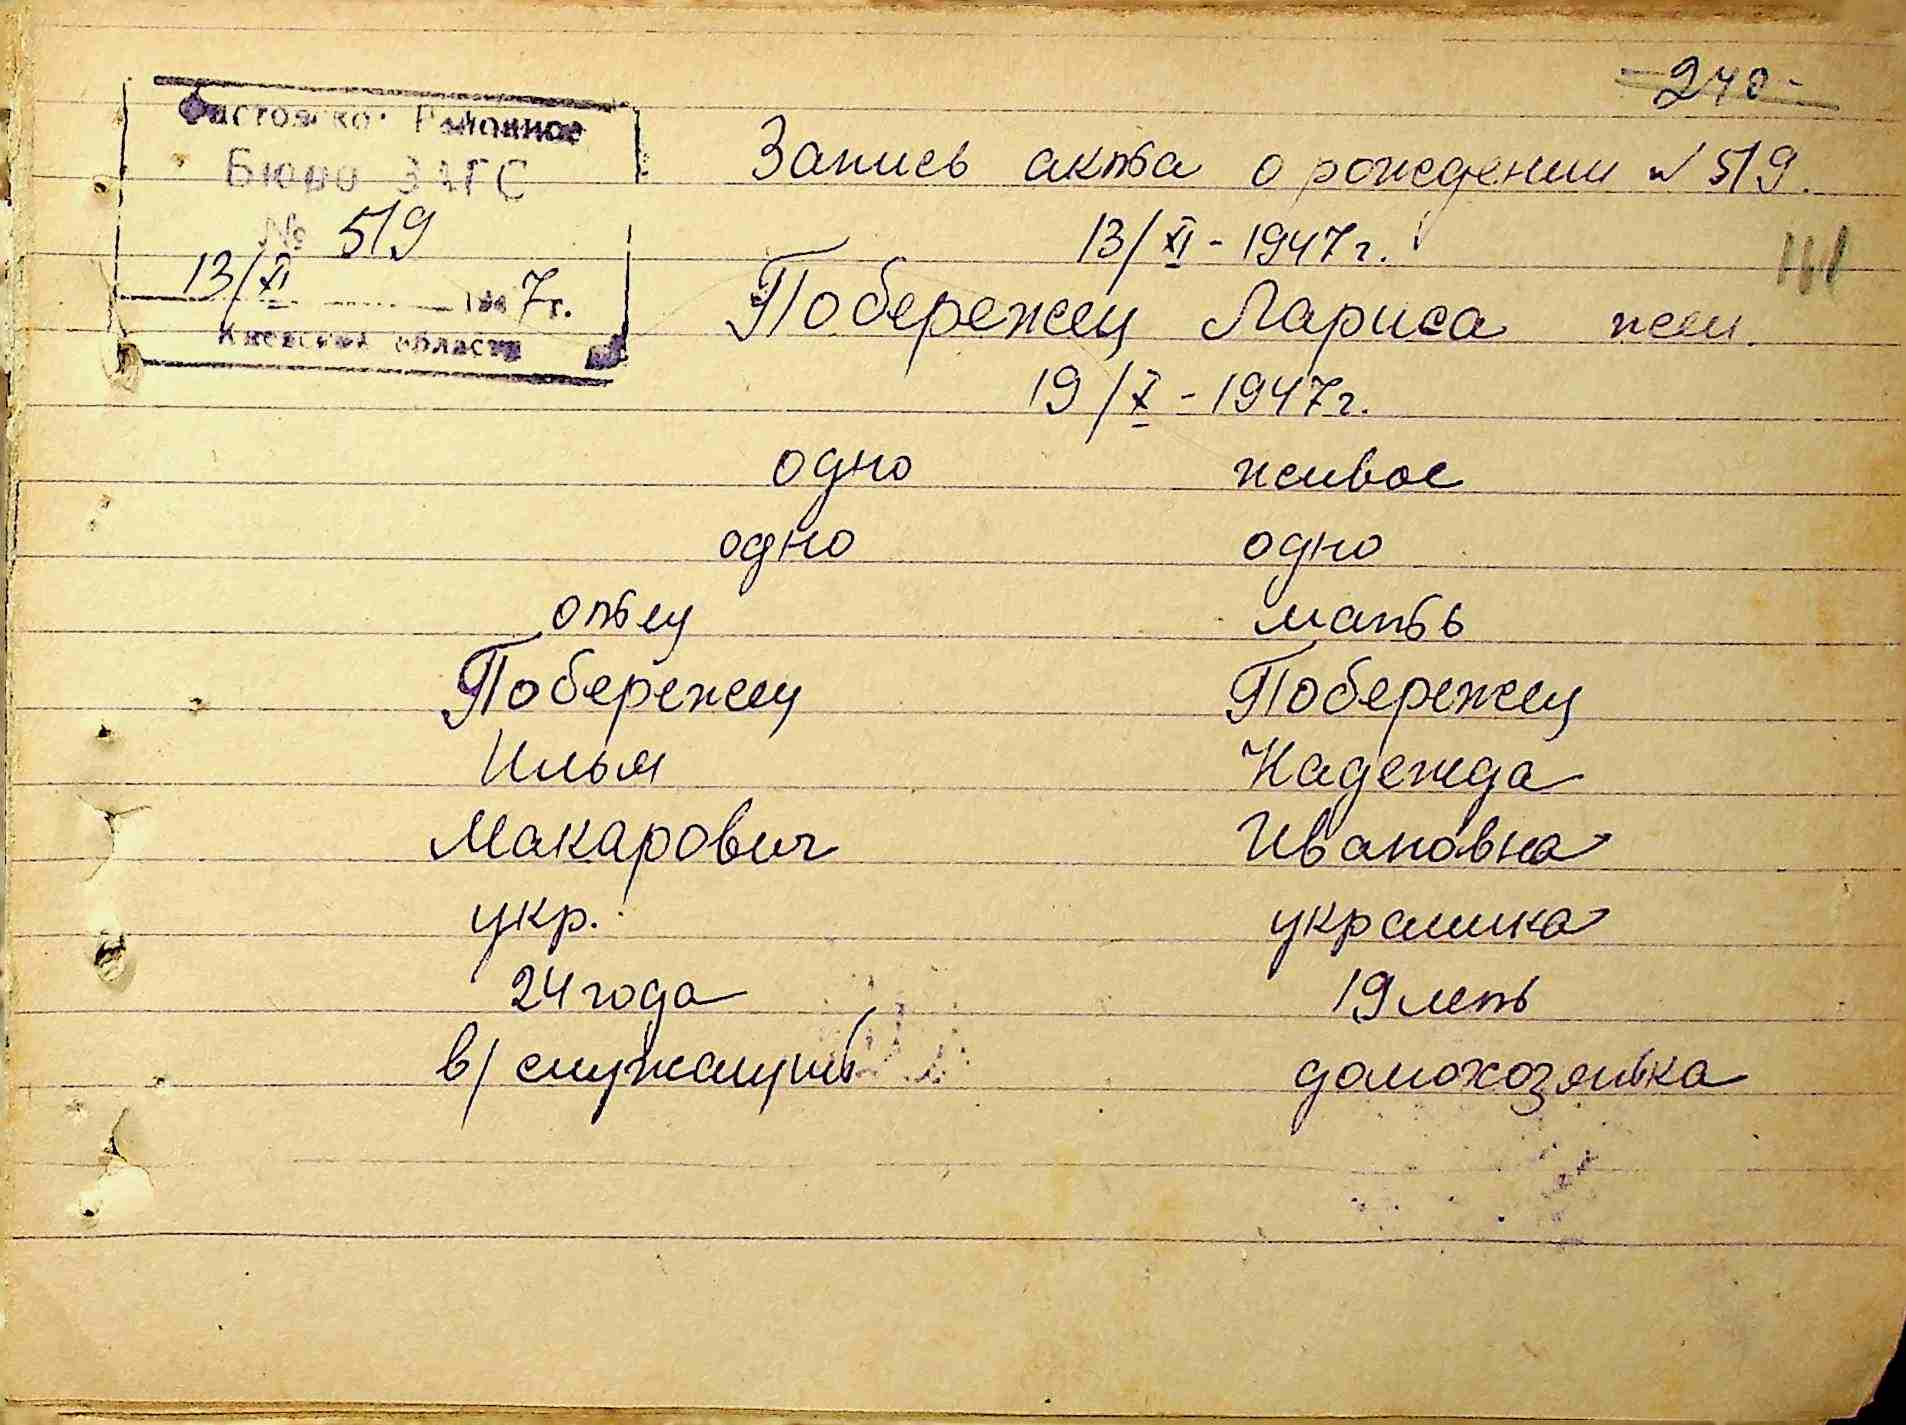 -240-
Фастовское Районное
Бюро ЗАГС
№ 519
13/XI 1947г.
Киевской области
Запись акта о рождении № 519.
13/XI - 1947г.
Побережец Лариса жен.
19/X - 1947г.
одно живое
одно одно
отец мать
Побережец Побережец
Илья Надежда
Макарович Ивановна
укр. украинка
24 года 19 летъ
в/служащий домохозяйка